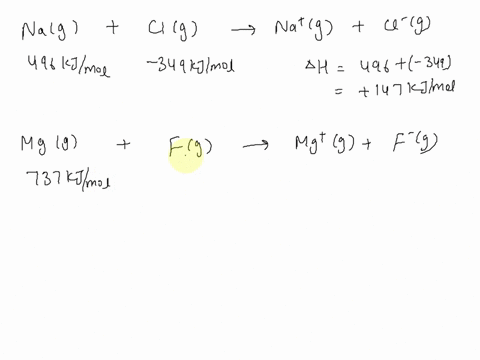 Na(g) + Cl(g) → Na⁺(g) + Cl⁻(g)
496 kJ/mol -349 kJ/mol ΔH = 496 + (-349)
= +147 kJ/mol
Mg(g) + F(g) → Mg⁺(g) + F⁻(g)
737 kJ/mol